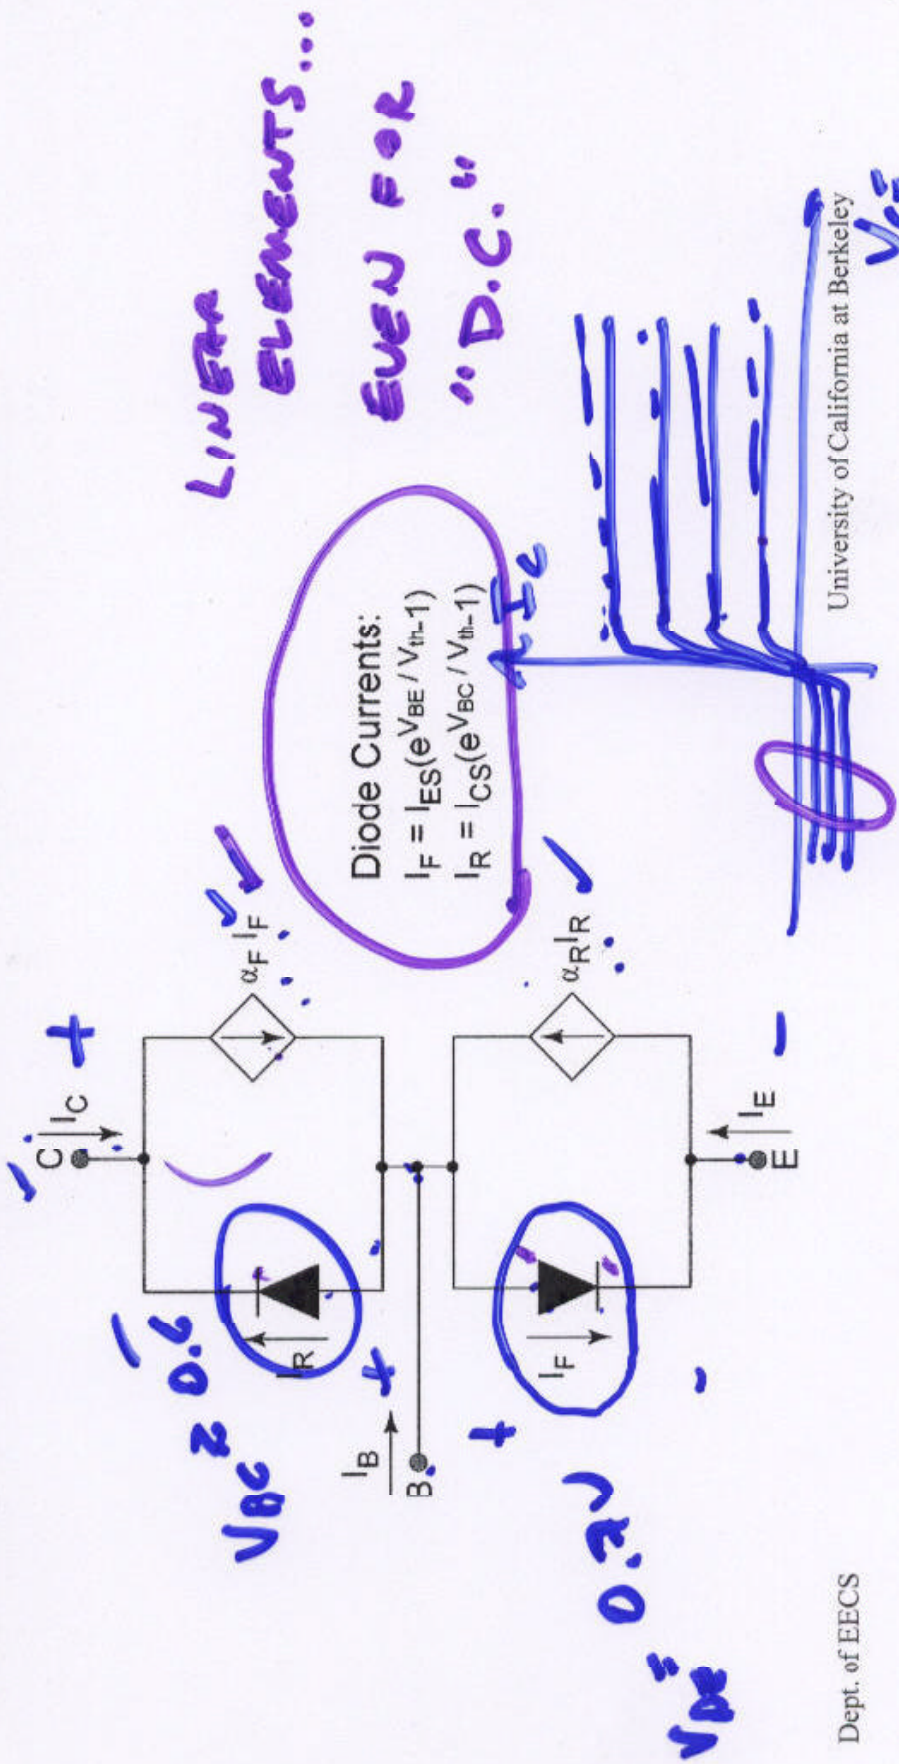 LINEAR
ELEMENTS...
EVEN FOR
"D.C."
C
I_C
+
α_F I_F
I_R
V_BC ≥ 0.6
-
+
I_B
B
Diode Currents:
I_F = I_ES(e^V_BE / V_th-1)
I_R = I_CS(e^V_BC / V_th-1)
I_C
+
I_F
α_R I_R
0.7V
-
I_E
E
-
Dept. of EECS
University of California at Berkeley